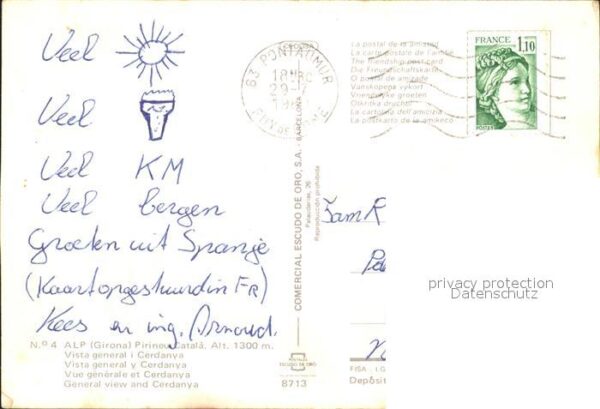 Veel
Veel
Veel KM
Veel bergen
Groeten uit Spanje
(Kaart opgestuurd in FR)
Kees en ing. Arnoud.
N.º 4 ALP (Girona) Pirineu Català. Alt. 1300 m.
Vista general i Cerdanya
Vista general y Cerdanya
Vue générale et Cerdanya
General view and Cerdanya
63 PONTAUMUR
18H
29-7
PUY DE DOME
COMERCIAL ESCUDO DE ORO, S.A. - BARCELONA
Palaudarias, 26
Reproducción prohibida
ESCUDO DE ORO
8713
La postal de la amistad
La carte postale de l'amitié
The friendship post card
Die Freundschaftskarte
O postal da amizade
Vanskapens vykort
Vriendelijke groeten
Otkritka druzhbi
La cartolina dell'amicizia
La postkarto de la amikeco
FRANCE
1,10
POSTES
Fam
FISA - I.G.
Depósit
privacy protection
Datenschutz